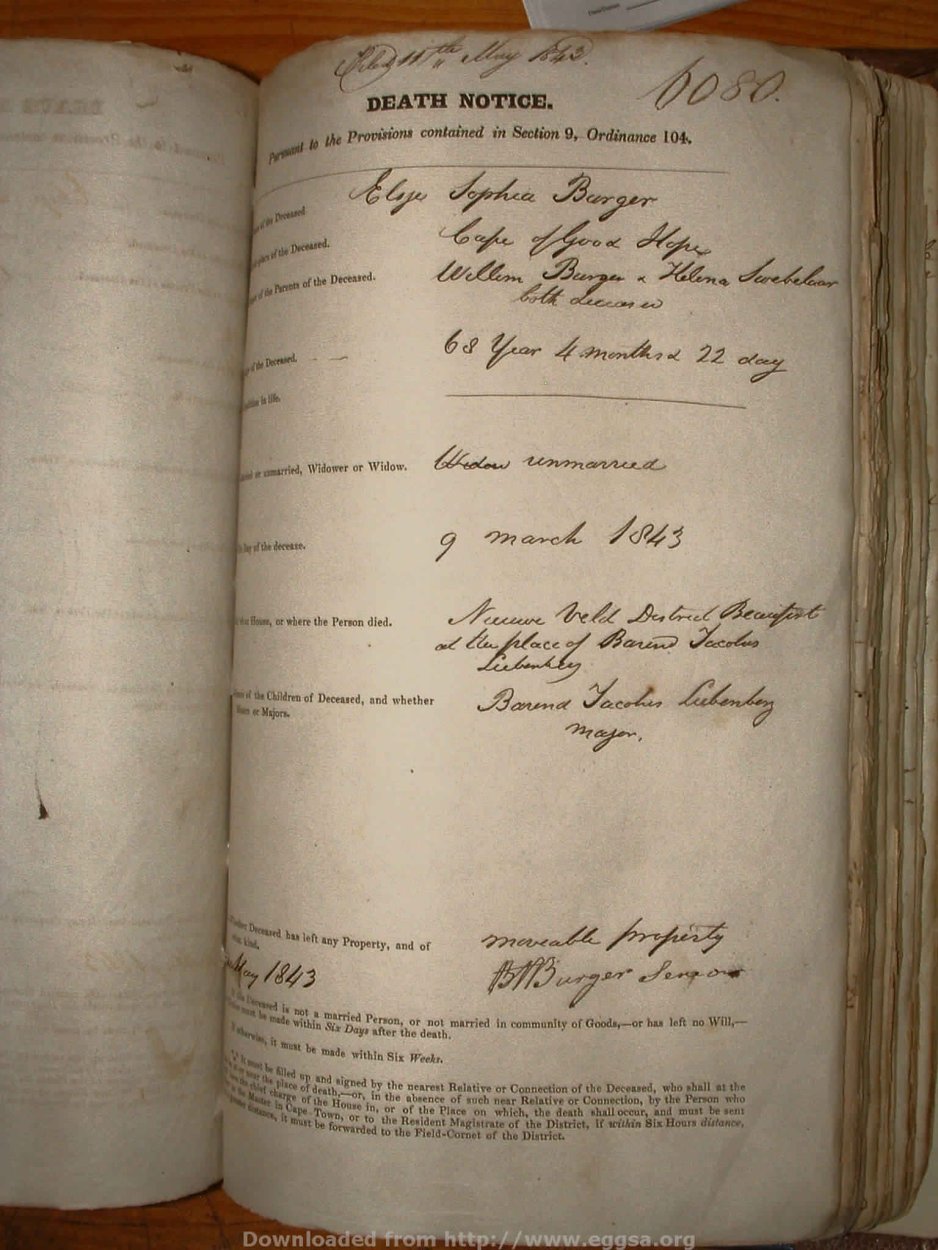 Filed 11th May 1843.
6080.
DEATH NOTICE.
Pursuant to the Provisions contained in Section 9, Ordinance 104.
of the Deceased
Elsje Sophia Burger
place of the Deceased.
Cape of Good Hope
of the Parents of the Deceased.
Willem Burger & Helena Swebelaar
both deceased
of the Deceased.
68 Year 4 months & 22 day
in life.
or unmarried, Widower or Widow.
Widow unmarried
Day of the decease.
9 march 1843
House, or where the Person died.
Nieuwe Veld District Beaufort
at the place of Barend Jacobus
Liebenberg
of the Children of Deceased, and whether
or Majors.
Barend Jacobus Liebenberg
major.
Deceased has left any Property, and of
kind.
moveable property
May 1843
Burger Senior
Deceased is not a married Person, or not married in community of Goods,—or has left no Will,—
must be made within Six Days after the death.
otherwise, it must be made within Six Weeks.
It must be filled up and signed by the nearest Relative or Connection of the Deceased, who shall at the
near the place of death,—or, in the absence of such near Relative or Connection, by the Person who
the chief charge of the House in, or of the Place on which, the death shall occur, and must be sent
Master in Cape Town, or to the Resident Magistrate of the District, if within Six Hours distance,
distance, it must be forwarded to the Field-Cornet of the District.
Downloaded from http://www.eggsa.org